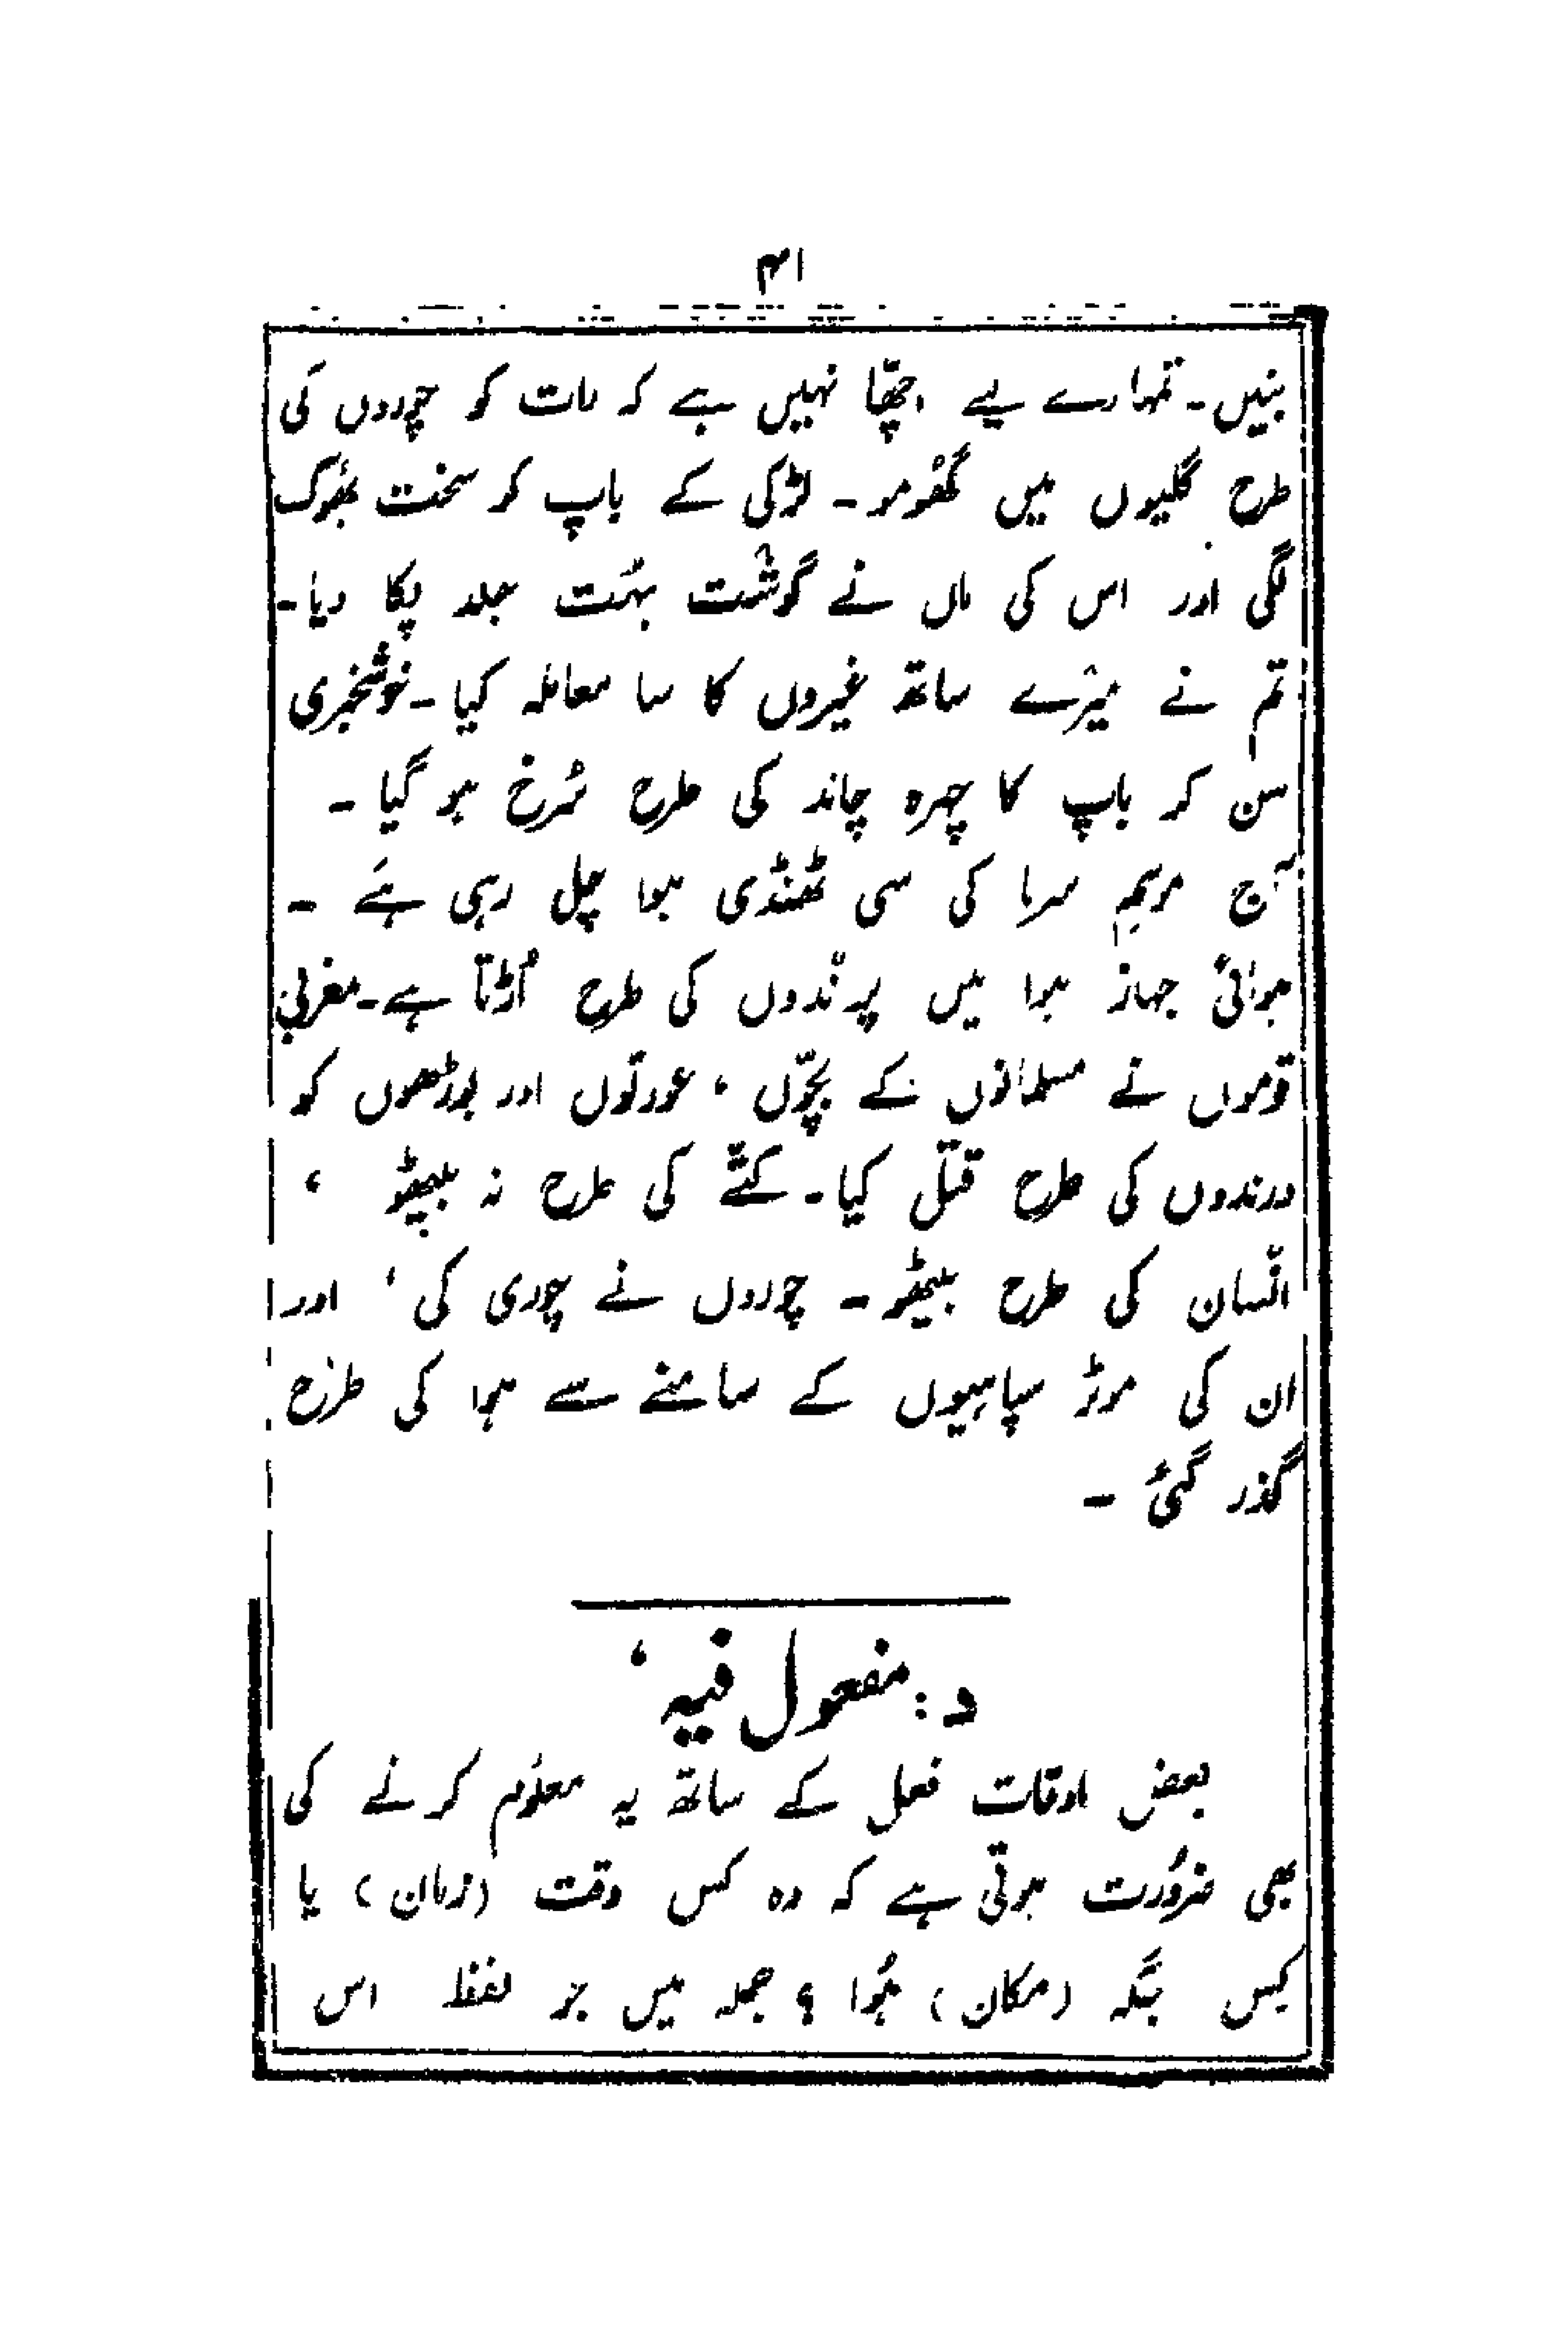 ۴۱
بنیں۔ تمہارے لیے اچھّا نہیں ہے کہ رات کو چوروں کی
طرح گلیوں میں گھُومو۔ لڑکی کے باپ کو سخت بھُوک
لگی اور اس کی ماں نے گوشت بہُت جلد پکا دیا۔
تم نے میرے ساتھ غیروں کا سا معاملہ کیا۔ خوشخبری
سن کر باپ کا چہرہ چاند کی طرح سُرخ ہو گیا۔
آج موسمِ سرما کی سی ٹھنڈی ہوا چل رہی ہَے۔
ہوائی جہاز ہوا میں پرندوں کی طرح اُڑتا ہے۔ مغربی
قوموں نے مسلمانوں کے بچّوں ، عورتوں اور بوڑھوں کو
درندوں کی طرح قتل کیا۔ کتّے کی طرح نہ بیٹھو ،
انسان کی طرح بیٹھو۔ چوروں نے چوری کی ، اور
ان کی موٹر سپاہیوں کے سامنے سے ہوا کی طرح
گذر گئی۔
د: مفعول فیہ ،
بعض اوقات فعل کے ساتھ یہ معلُوم کرنے کی
بھی ضرُورت ہوتی ہے کہ وہ کس وقت (زمان) یا
کِس جگہ (مکان) ہُوا ؟ جملہ میں جو لفظ اس